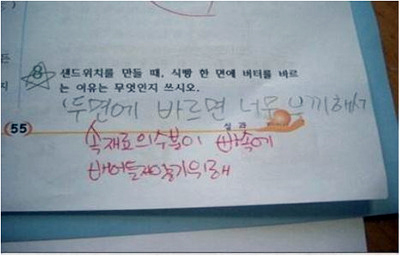 8 샌드위치를 만들 때, 식빵 한 면에 버터를 바르
는 이유는 무엇인지 쓰시오.
두면에 바르면 너무 느끼해서
(55)
실과
속재료의수분이 빵속에
배어들지않기위해